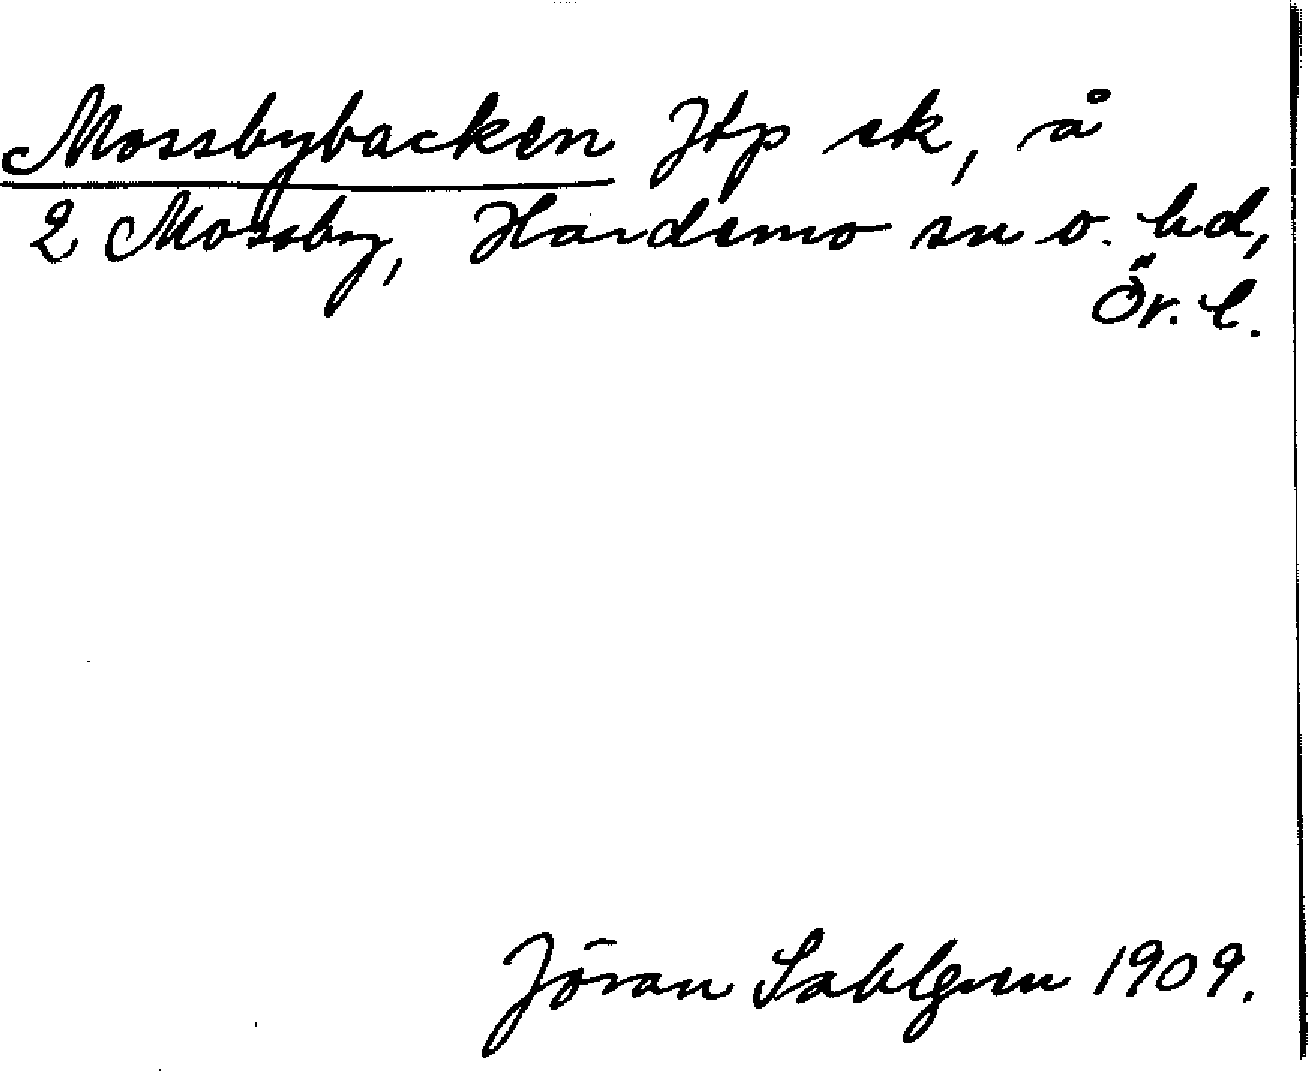 Mossbybacken Jtp ek, å
2 Mossby, Hardemo sn o. hd,
Ör. l.
Jöran Sahlgren 1909.